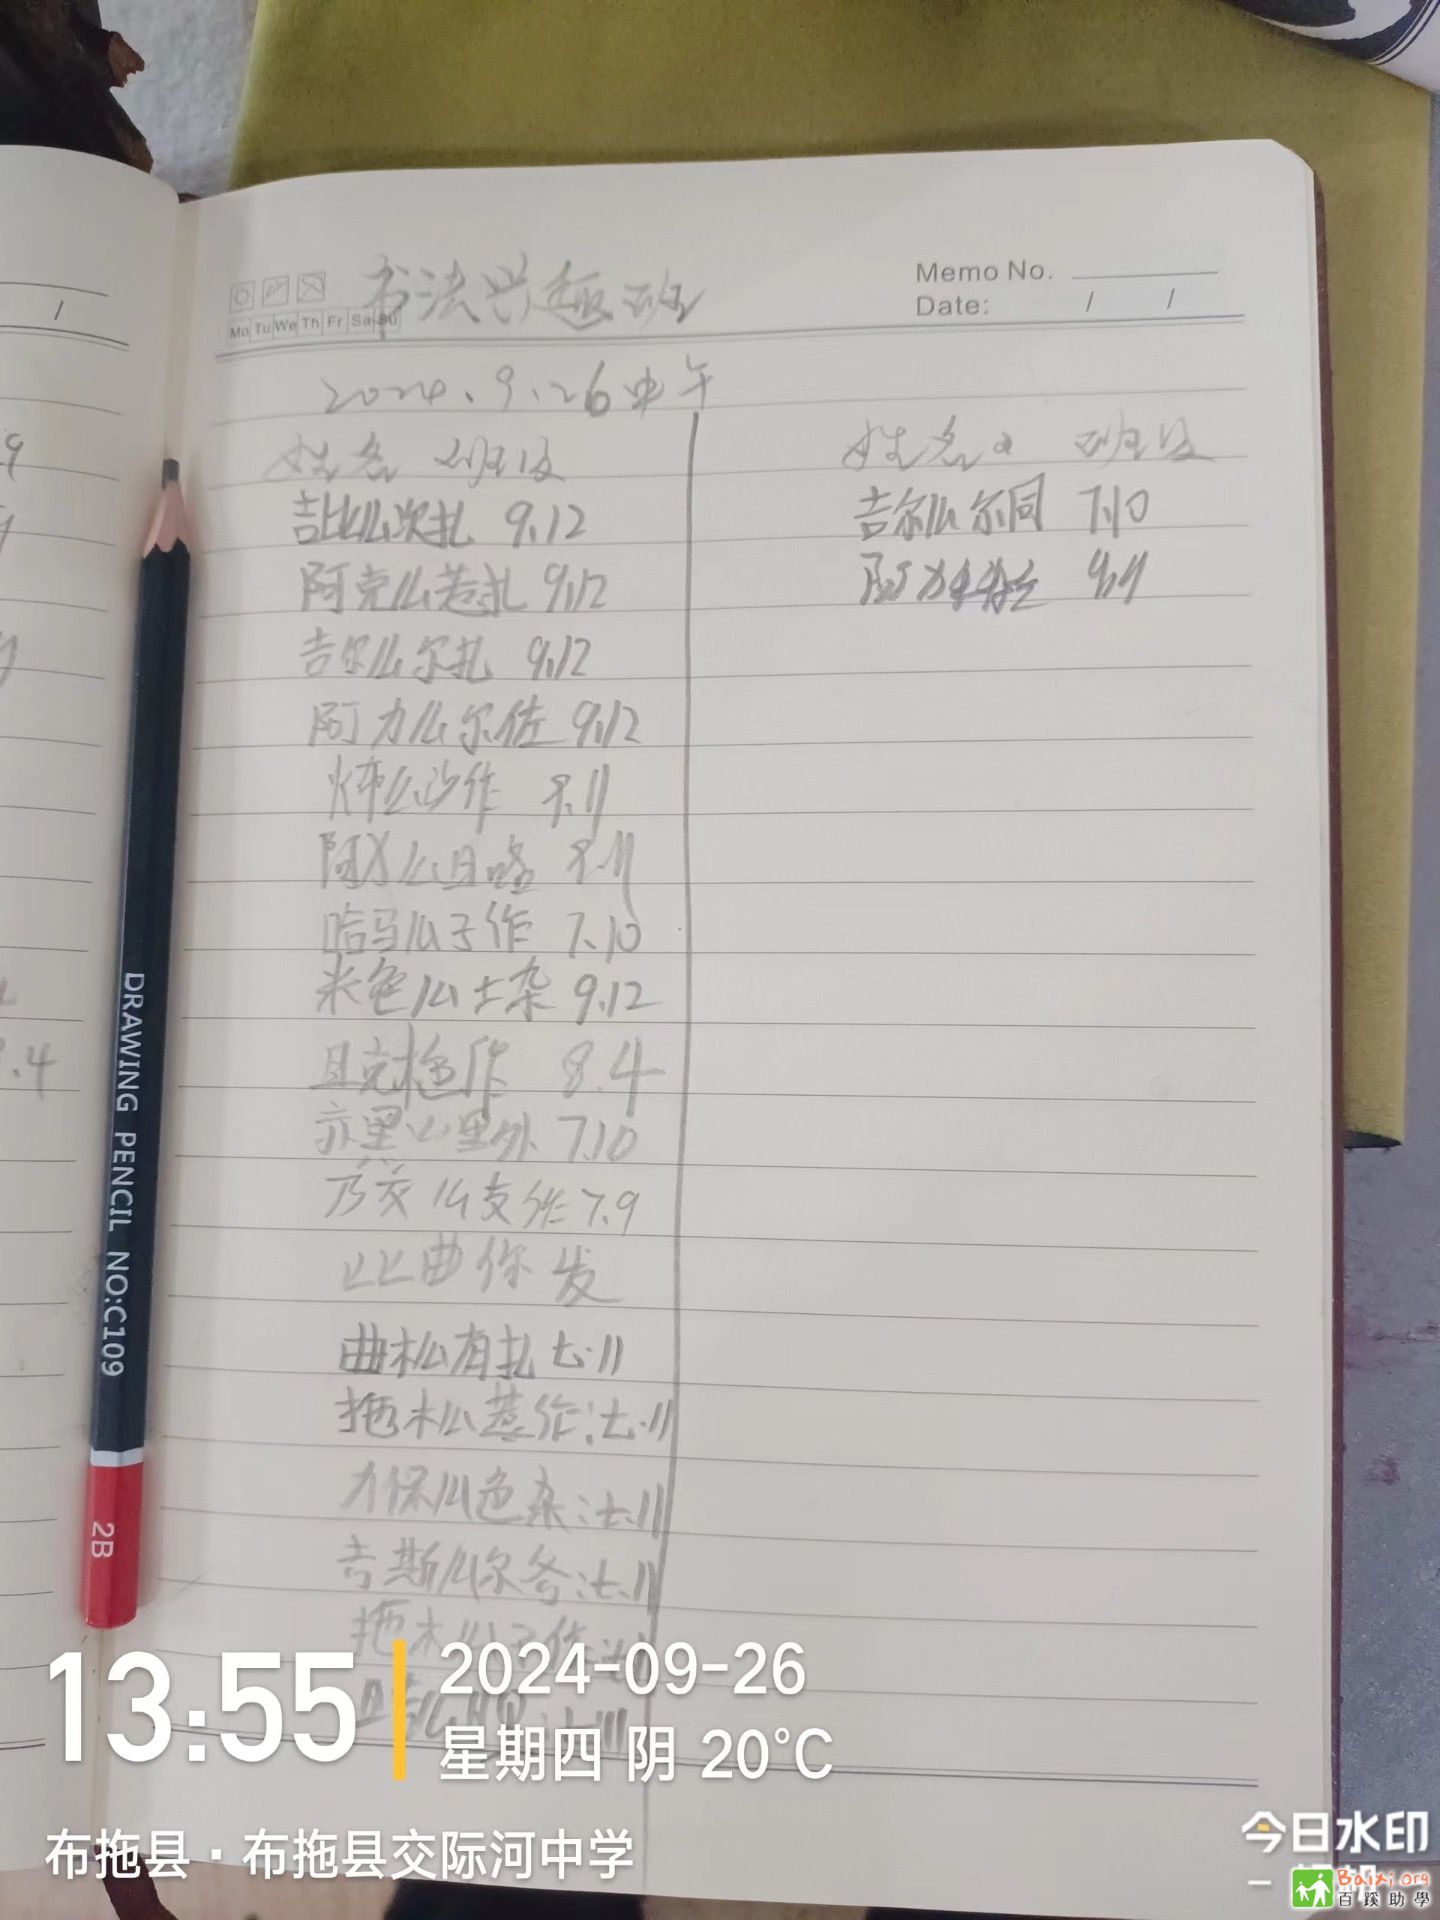 书法兴趣班
Memo No.
Mo Tu We Th Fr Sa Su
Date: / /
2024.9.26中午
姓名 班级
吉比么次扎 9.12
阿克么惹扎 9.12
吉尔么尔扎 9.12
阿力么尔佐 9.12
么沙作 8.11
阿 么日 8.11
哈马么子作 7.10
米色么土杂 9.12
且克 作 8.4
里么里外 7.10
乃 么支作 7.9
比曲你发
曲木么有扎 七.11
拖木么惹作:七.11
力保么色杂:七.11
吉斯么尔冬:七.11
拖木么子作:七
姓名 班级
吉尔么尔同 7.10
阿力 9.11
/
9
.4
DRAWING PENCIL NO:C109
2B
13:55
2024-09-26
星期四 阴 20°C
布拖县·布拖县交际河中学
今日水印
Baixi.Org
百蹊助學